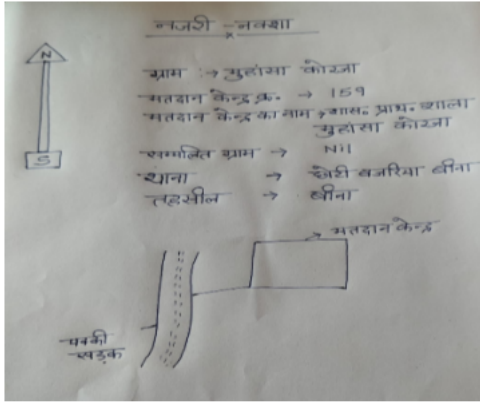 नजरी - नक्शा
N
S
ग्राम → मुहांसा कोरजा
मतदान केन्द्र क्र. → 159
मतदान केन्द्र का नाम → शास. प्राथ. शाला
मुहांसा कोरजा
सम्मलित ग्राम → Nil
थाना → छोटी बजरिया बीना
तहसील → बीना
→ मतदान केन्द्र
पक्की
सड़क